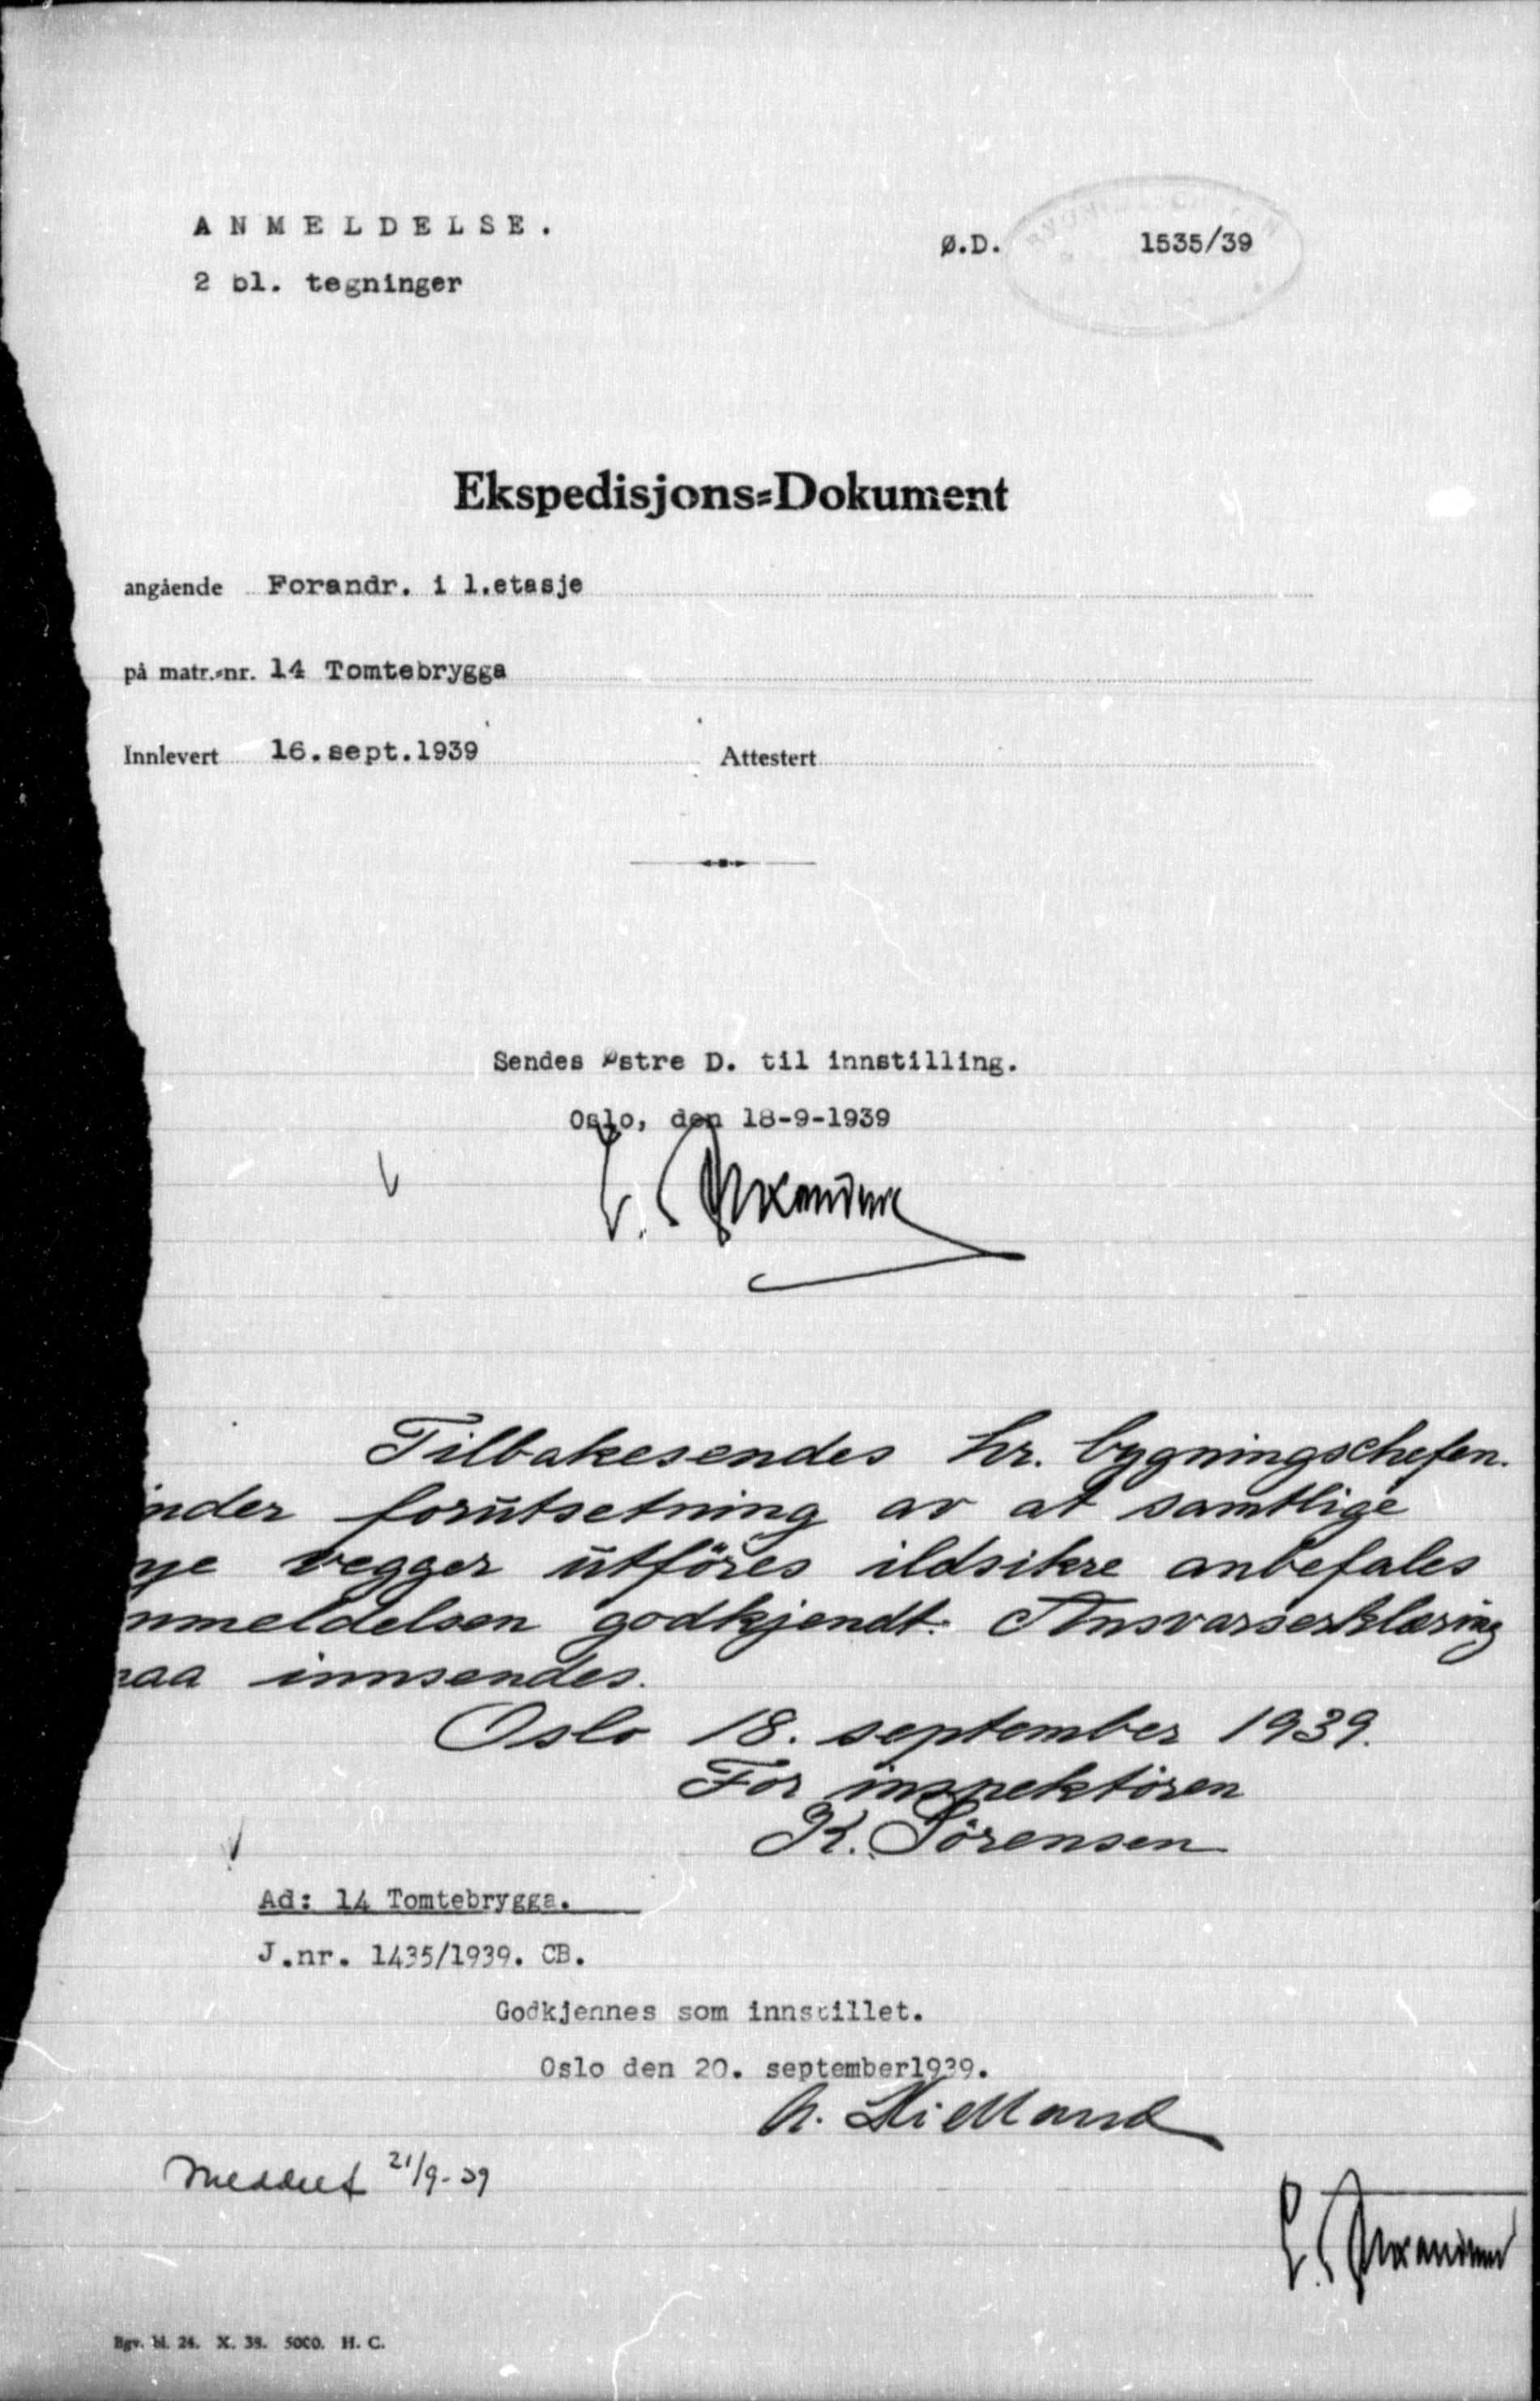 A N M E L D E L S E .
Ø.D. 1535/39
2 bl. tegninger
Ekspedisjons=Dokument
angående Forandr. i 1.etasje
på matr.=nr. 14 Tomtebrygga
Innlevert 16.sept.1939 Attestert
Sendes Østre D. til innstilling.
Oslo, den 18-9-1939
Tilbakesendes hr. bygningschefen.
nder forutsetning av at samtlige
ye vegger utföres ildsikre anbefales
nmeldelsen godkjendt. Ansvarserklæring
aa innsendes.
Oslo 18. september 1939.
For inspektören
K. Sörensen
Ad: 14 Tomtebrygga.
J.nr. 1435/1939. CB.
Godkjennes som innstillet.
Oslo den 20. september1939.
Meddelt 21/9-39
Bgv. bl. 24. X. 38. 5000. H. C.